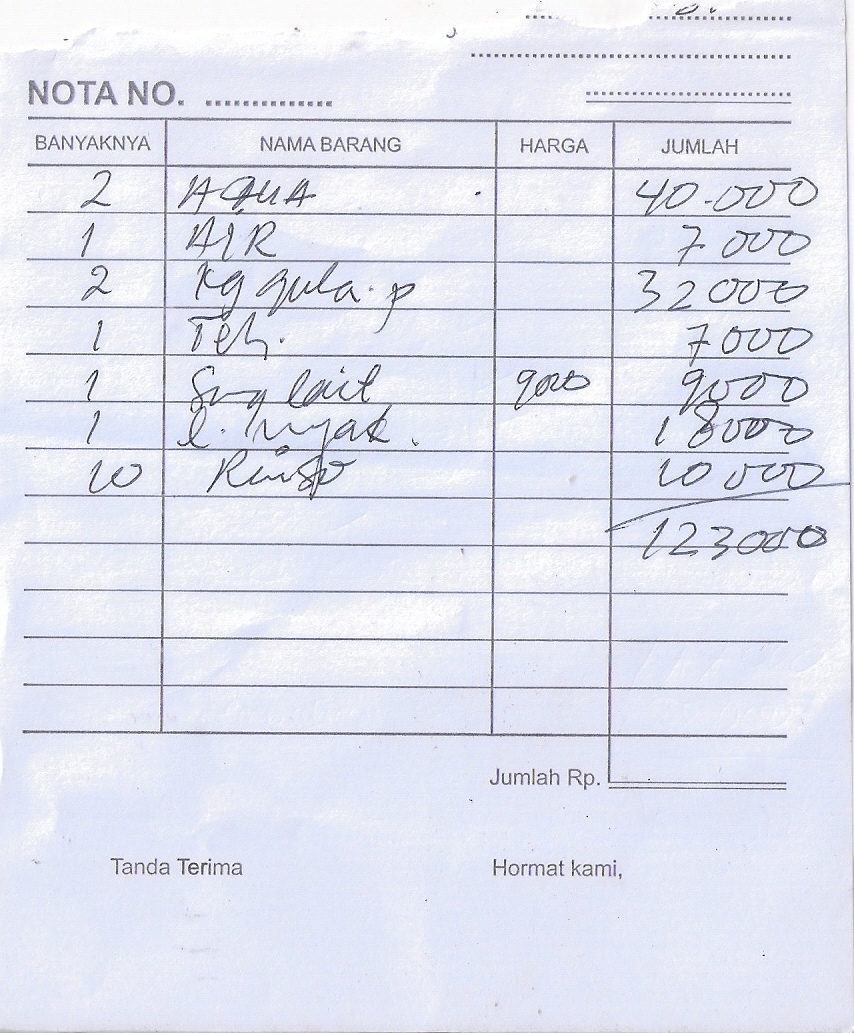 NOTA NO. ................
BANYAKNYA NAMA BARANG HARGA JUMLAH
2 AQUA 40.000
1 AIR 7 000
2 Kg gula. p 32000
1 Teh. 7000
1 9000 9000
1 l. 18000
10 Rinso 10 000
123000
Jumlah Rp.
Tanda Terima Hormat kami,